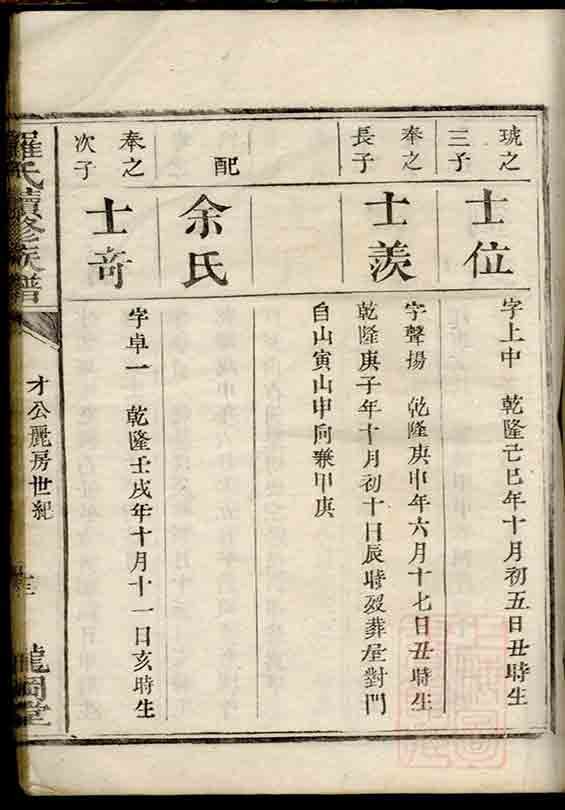 琥之
三子
士位
字上中 乾隆己巳年十月初五日丑時生
奉之
長子
士羨
字聲揚 乾隆庚申年六月十七日丑時生
乾隆庚子年十月初十日辰時歿葬屋對門
自山寅山申向兼甲庚
配
余氏
奉之
次子
士奇
字卓一 乾隆壬戌年十月十一日亥時生
羅氏續修族譜
才公麗房世紀
龍岡堂